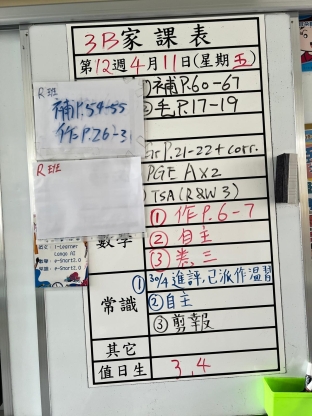 3B家課表
第12週4月11日(星期五)
R班
補P.54-55
作P.26-31
)補P.60-67
②毛P.17-19
R班
Gr P.21-22+corr.
PGF A×2
TSA(R&W3)
數學
① 作P.6-7
② 自主
③ 卷三
常識
①30/4進評,已派作溫習
②自主
③剪報
其它
值日生
3,4
i-Learner